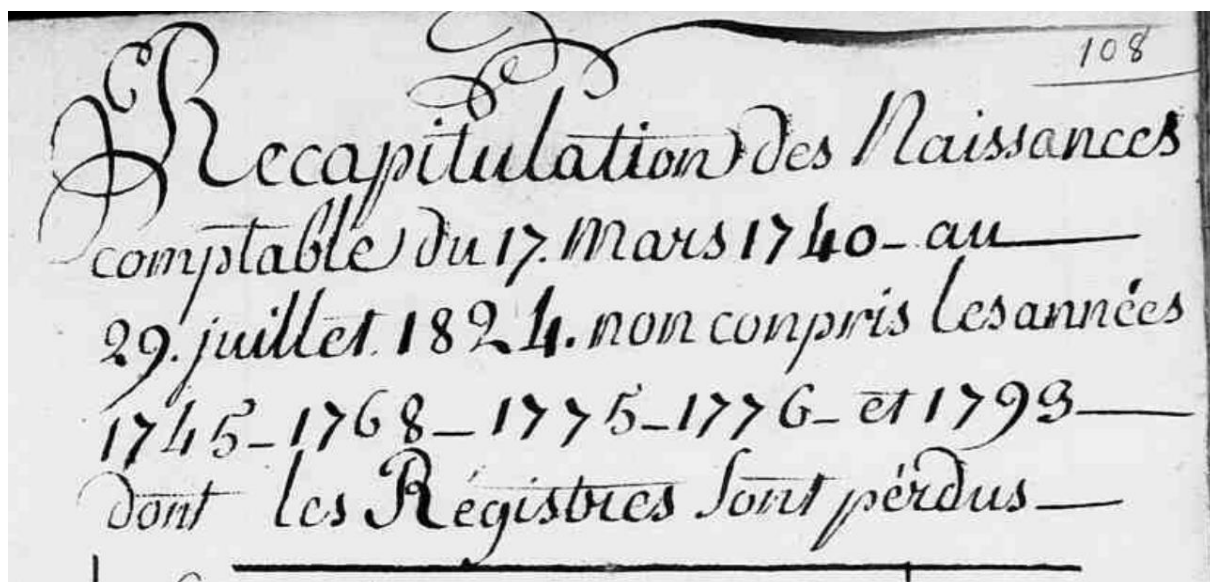 108
Recapitulation des Naissances
comptable du 17. Mars 1740 - au
29. juillet. 1824. non conpris les années
1745 - 1768 - 1775 - 1776 - et 1793
dont les Régistres sont pérdus